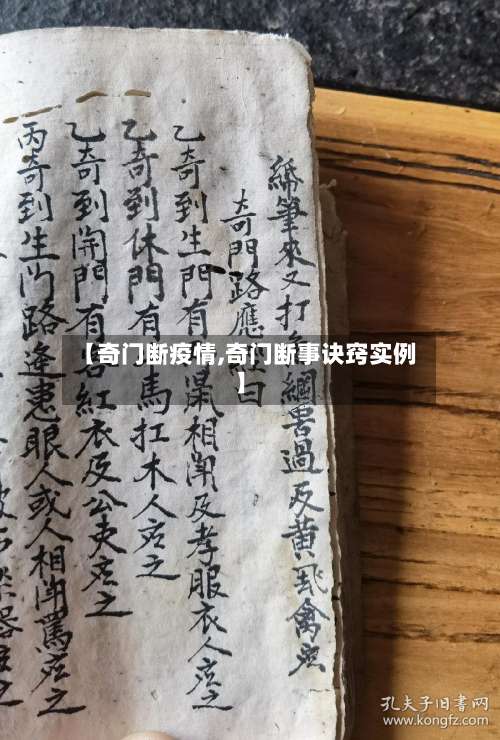 紙筆來又打 綱罟過及黃 飛禽應
奇門路應 曰
乙奇到生門有 鼠相鬧及孝服衣人應之
乙奇到休門有 馬扛木人應之
乙奇到開門有 紅衣及公吏應之
丙奇到生门路逢患眼人或人相鬧罵應之
器應之
【奇门断疫情,奇门断事诀窍实例
】
孔夫子旧书网
www.kongfz.com